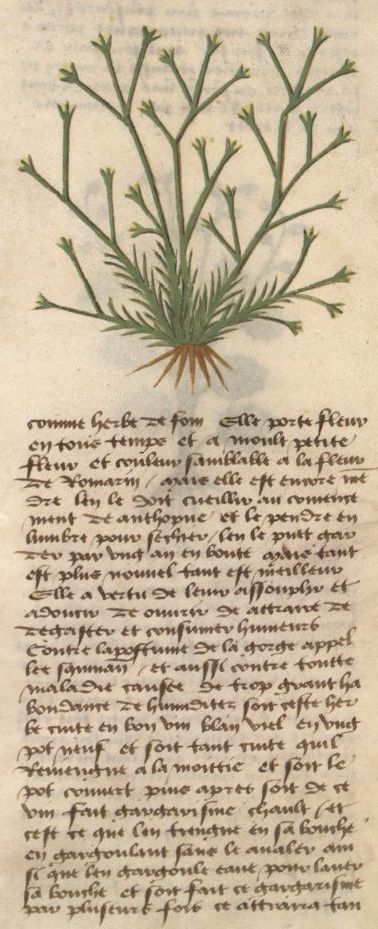 comme herbe de foin Elle porte fleur
en tous temps et a moult petite
fleur et couleur samblable a la fleur
de Romarin / mais elle est encore me
dre len le doit cueillir au comence
ment de anthopne et le pendre en
lumbre pour secher / len le puet gar
der par vng an en bonte mais tant
est plus nouuel tant est meilleur
Elle a vertu de leur assouplir et
adoucir de ouurir de attraire de
degaster et consumer humeurs
Contre lapostume de la gorge appel
lee squinan / et aussi contre toutte
maladie causee de trop grant ha
bondance de humiditez soit ceste her
be cuite en bon vin blan viel en vng
pot neuf et soit tant cuite quil
Reuiengne a la moittie et soit le
pot couuert puis apres soit de ce
vin fait gargarisme chault / et
cest ce que len trengne en sa bouche
en gargoulant sans le aualer ain
si que len gargoule eaue pour lauer
sa bouche et soit fait ce gargarisme
par plusieurs fois ce attraira tan